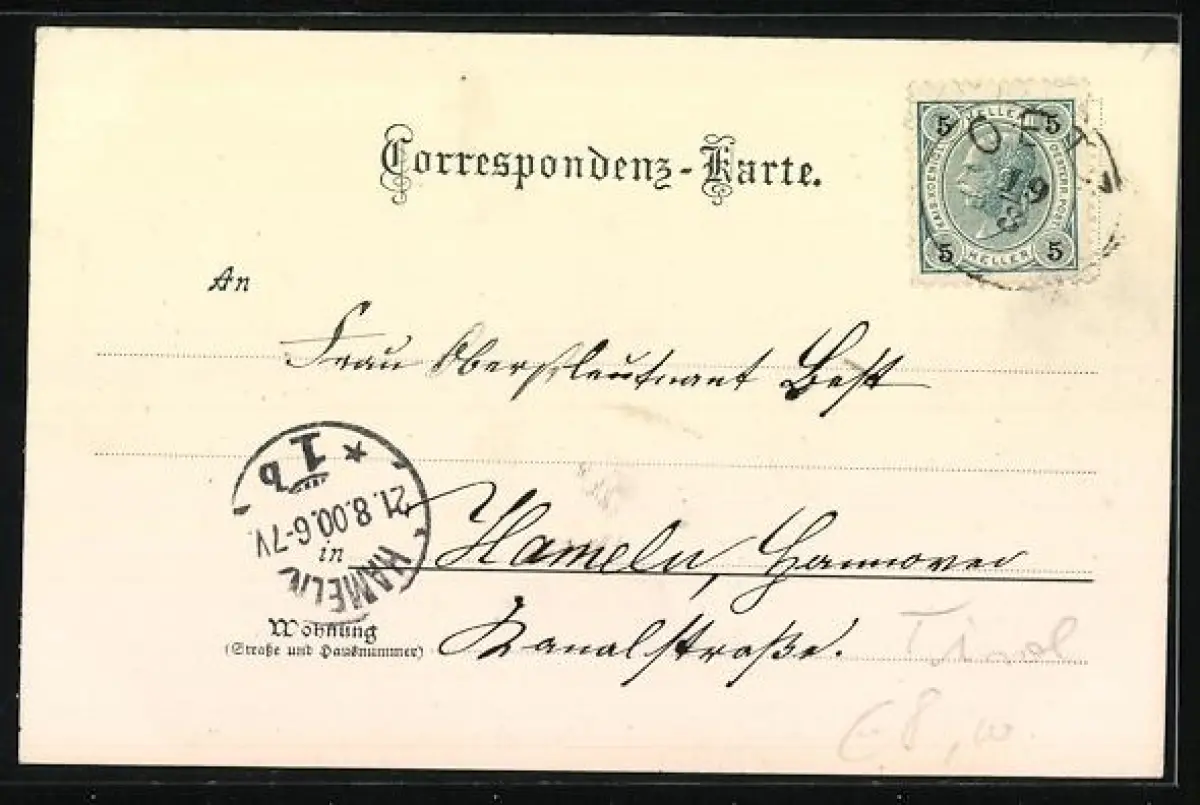 Correspondenz-Karte.
5 HELLER 5
KAIS. KOENIGL. OESTERR. POST
5 HELLER 5
19
8
An
Frau Oberstleutnant Best
* 1 b
21.8.00.6-7V.
HAMELN
in Hameln, Hannover
Wohnung
(Straße und Hausnummer)
Kanalstraße.
Tirol